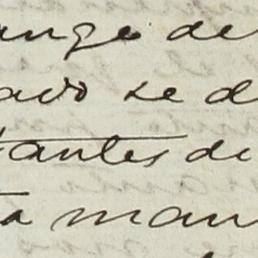 ango de
ado se d
tantes de
ta man